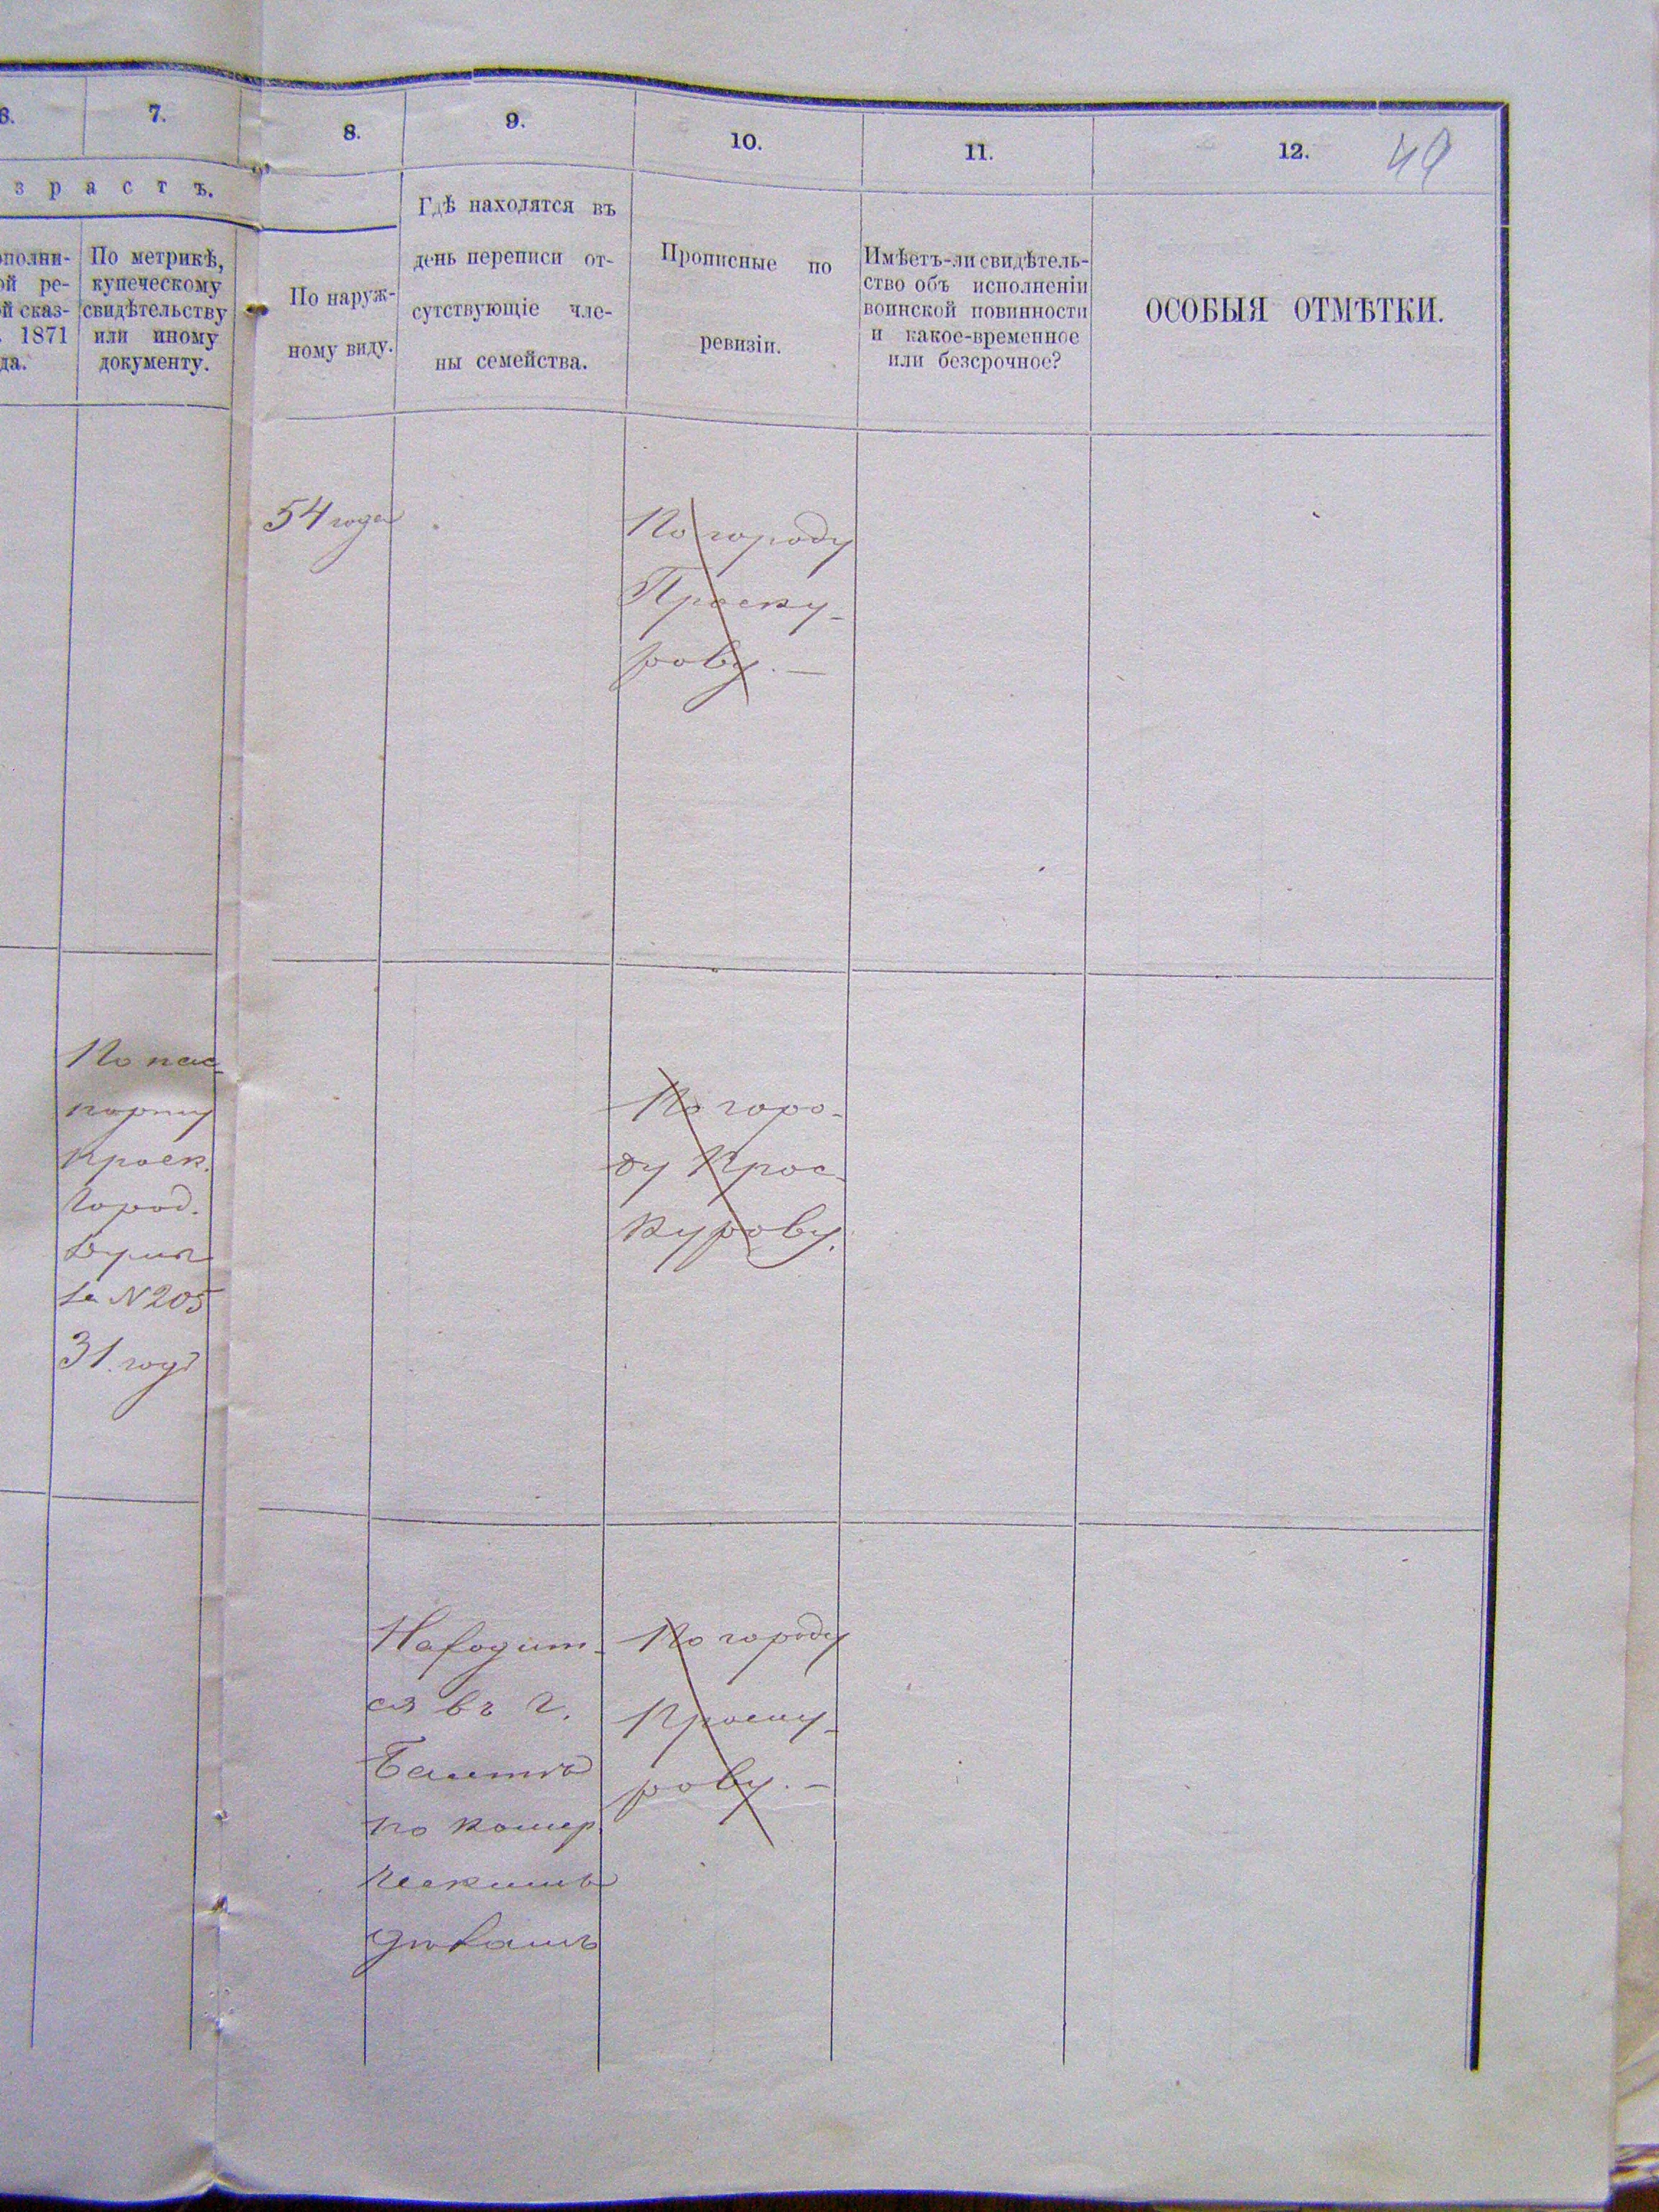 6.
7.
8.
9.
10.
11.
12.
49
зрастъ.
ополни-
ой ре-
ой сказ-
1871
да.
По метрикѣ,
купеческому
свидѣтельству
или иному
документу.
По наруж-
ному виду.
Гдѣ находятся въ
день переписи от-
сутствующіе чле-
ны семейства.
Прописные по
ревизіи.
Имѣетъ-ли свидѣтель-
ство объ исполненіи
воинской повинности
и какое-временное
или безсрочное?
ОСОБЫЯ ОТМѢТКИ.
54 года
По городу
Проску-
рову. —
По пас-
порту
Проск.
Город.
Думы
за N 205
31 годъ
По горо-
ду Прос-
курову.
Находит-
ся въ г.
по комер
ческимъ
дѣламъ
По городу
Проску-
рову. —